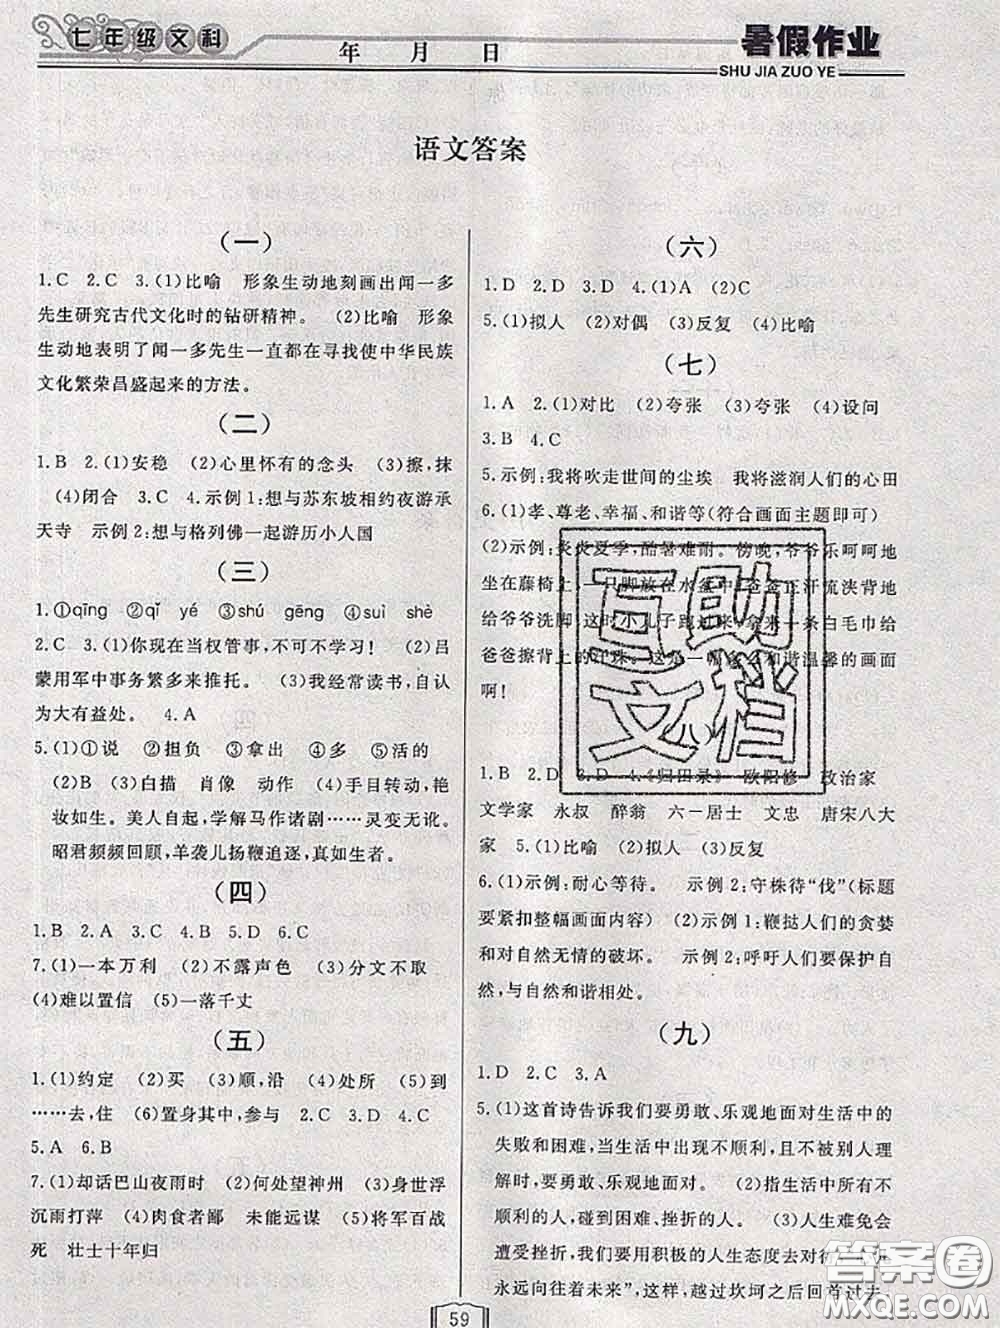 七年级文科
年 月 日
暑假作业
SHU JIA ZUO YE
语文答案
(一)
1.C 2.C 3.(1)比喻 形象生动地刻画出闻一多
先生研究古代文化时的钻研精神。 (2)比喻 形象
生动地表明了闻一多先生一直都在寻找使中华民族
文化繁荣昌盛起来的方法。
(二)
1.B 2.(1)安稳 (2)心里怀有的念头 (3)擦,抹
(4)闭合 3.C 4.示例1:想与苏东坡相约夜游承
天寺 示例2:想与格列佛一起游历小人国
(三)
1.①qīng ②qǐ yé ③shú gēng ④suì shè
2.C 3.(1)你现在当权管事,不可不学习! (2)吕
蒙用军中事务繁多来推托。 (3)我经常读书,自认
为大有益处。 4.A
5.(1)①说 ②担负 ③拿出 ④多 ⑤活的
(2)B (3)白描 肖像 动作 (4)手目转动,艳
妆如生。美人自起,学解马作诸剧……灵变无讹。
昭君频频回顾,羊裘儿扬鞭追逐,真如生者。
(四)
1.B 2.A 3.C 4.B 5.D 6.C
7.(1)一本万利 (2)不露声色 (3)分文不取
(4)难以置信 (5)一落千丈
(五)
1.(1)约定 (2)买 (3)顺,沿 (4)处所 (5)到
……去,住 (6)置身其中,参与 2.C 3.D 4.C
5.A 6.B
7.(1)却话巴山夜雨时 (2)何处望神州 (3)身世浮
沉雨打萍 (4)肉食者鄙 未能远谋 (5)将军百战
死 壮士十年归
(六)
1.D 2.D 3.D 4.(1)A (2)C
5.(1)拟人 (2)对偶 (3)反复 (4)比喻
(七)
1.A 2.(1)对比 (2)夸张 (3)夸张 (4)设问
3.B 4.C
5.示例:我将吹走世间的尘埃 我将滋润人们的心田
6.(1)孝、尊老、幸福、和谐等(符合画面主题即可)
(2)示例:炎炎夏季,酷暑难耐。傍晚,爷爷乐呵呵地
坐在藤椅上,一只脚放在水盆中,爸爸正汗流浃背地
给爷爷洗脚,这时小儿子跑过来,拿来一条白毛巾给
爸爸擦背上的汗珠。这是一幅多么和谐温馨的画面
啊!
(八)
1.B 2.D 3.D 4.《归田录》 欧阳修 政治家
文学家 永叔 醉翁 六一居士 文忠 唐宋八大
家 5.(1)比喻 (2)拟人 (3)反复
6.(1)示例:耐心等待。 示例2:守株待“伐”(标题
要紧扣整幅画面内容) (2)示例1:鞭挞人们的贪婪
和对自然无情的破坏。 示例2:呼吁人们要保护自
然,与自然和谐相处。
(九)
1.D 2.C 3.A
5.(1)这首诗告诉我们要勇敢、乐观地面对生活中的
失败和困难,当生活中出现不顺利,且不被别人理
解时,要勇敢、乐观地面对。 (2)指生活中所有不
顺利的人,碰到困难、挫折的人。 (3)人生难免会
遭受挫折,我们要用积极的人生态度去对待,“心儿
永远向往着未来”,这样,越过坎坷之后回首过去,
59
互助
文档
答案圈
MXQE.COM